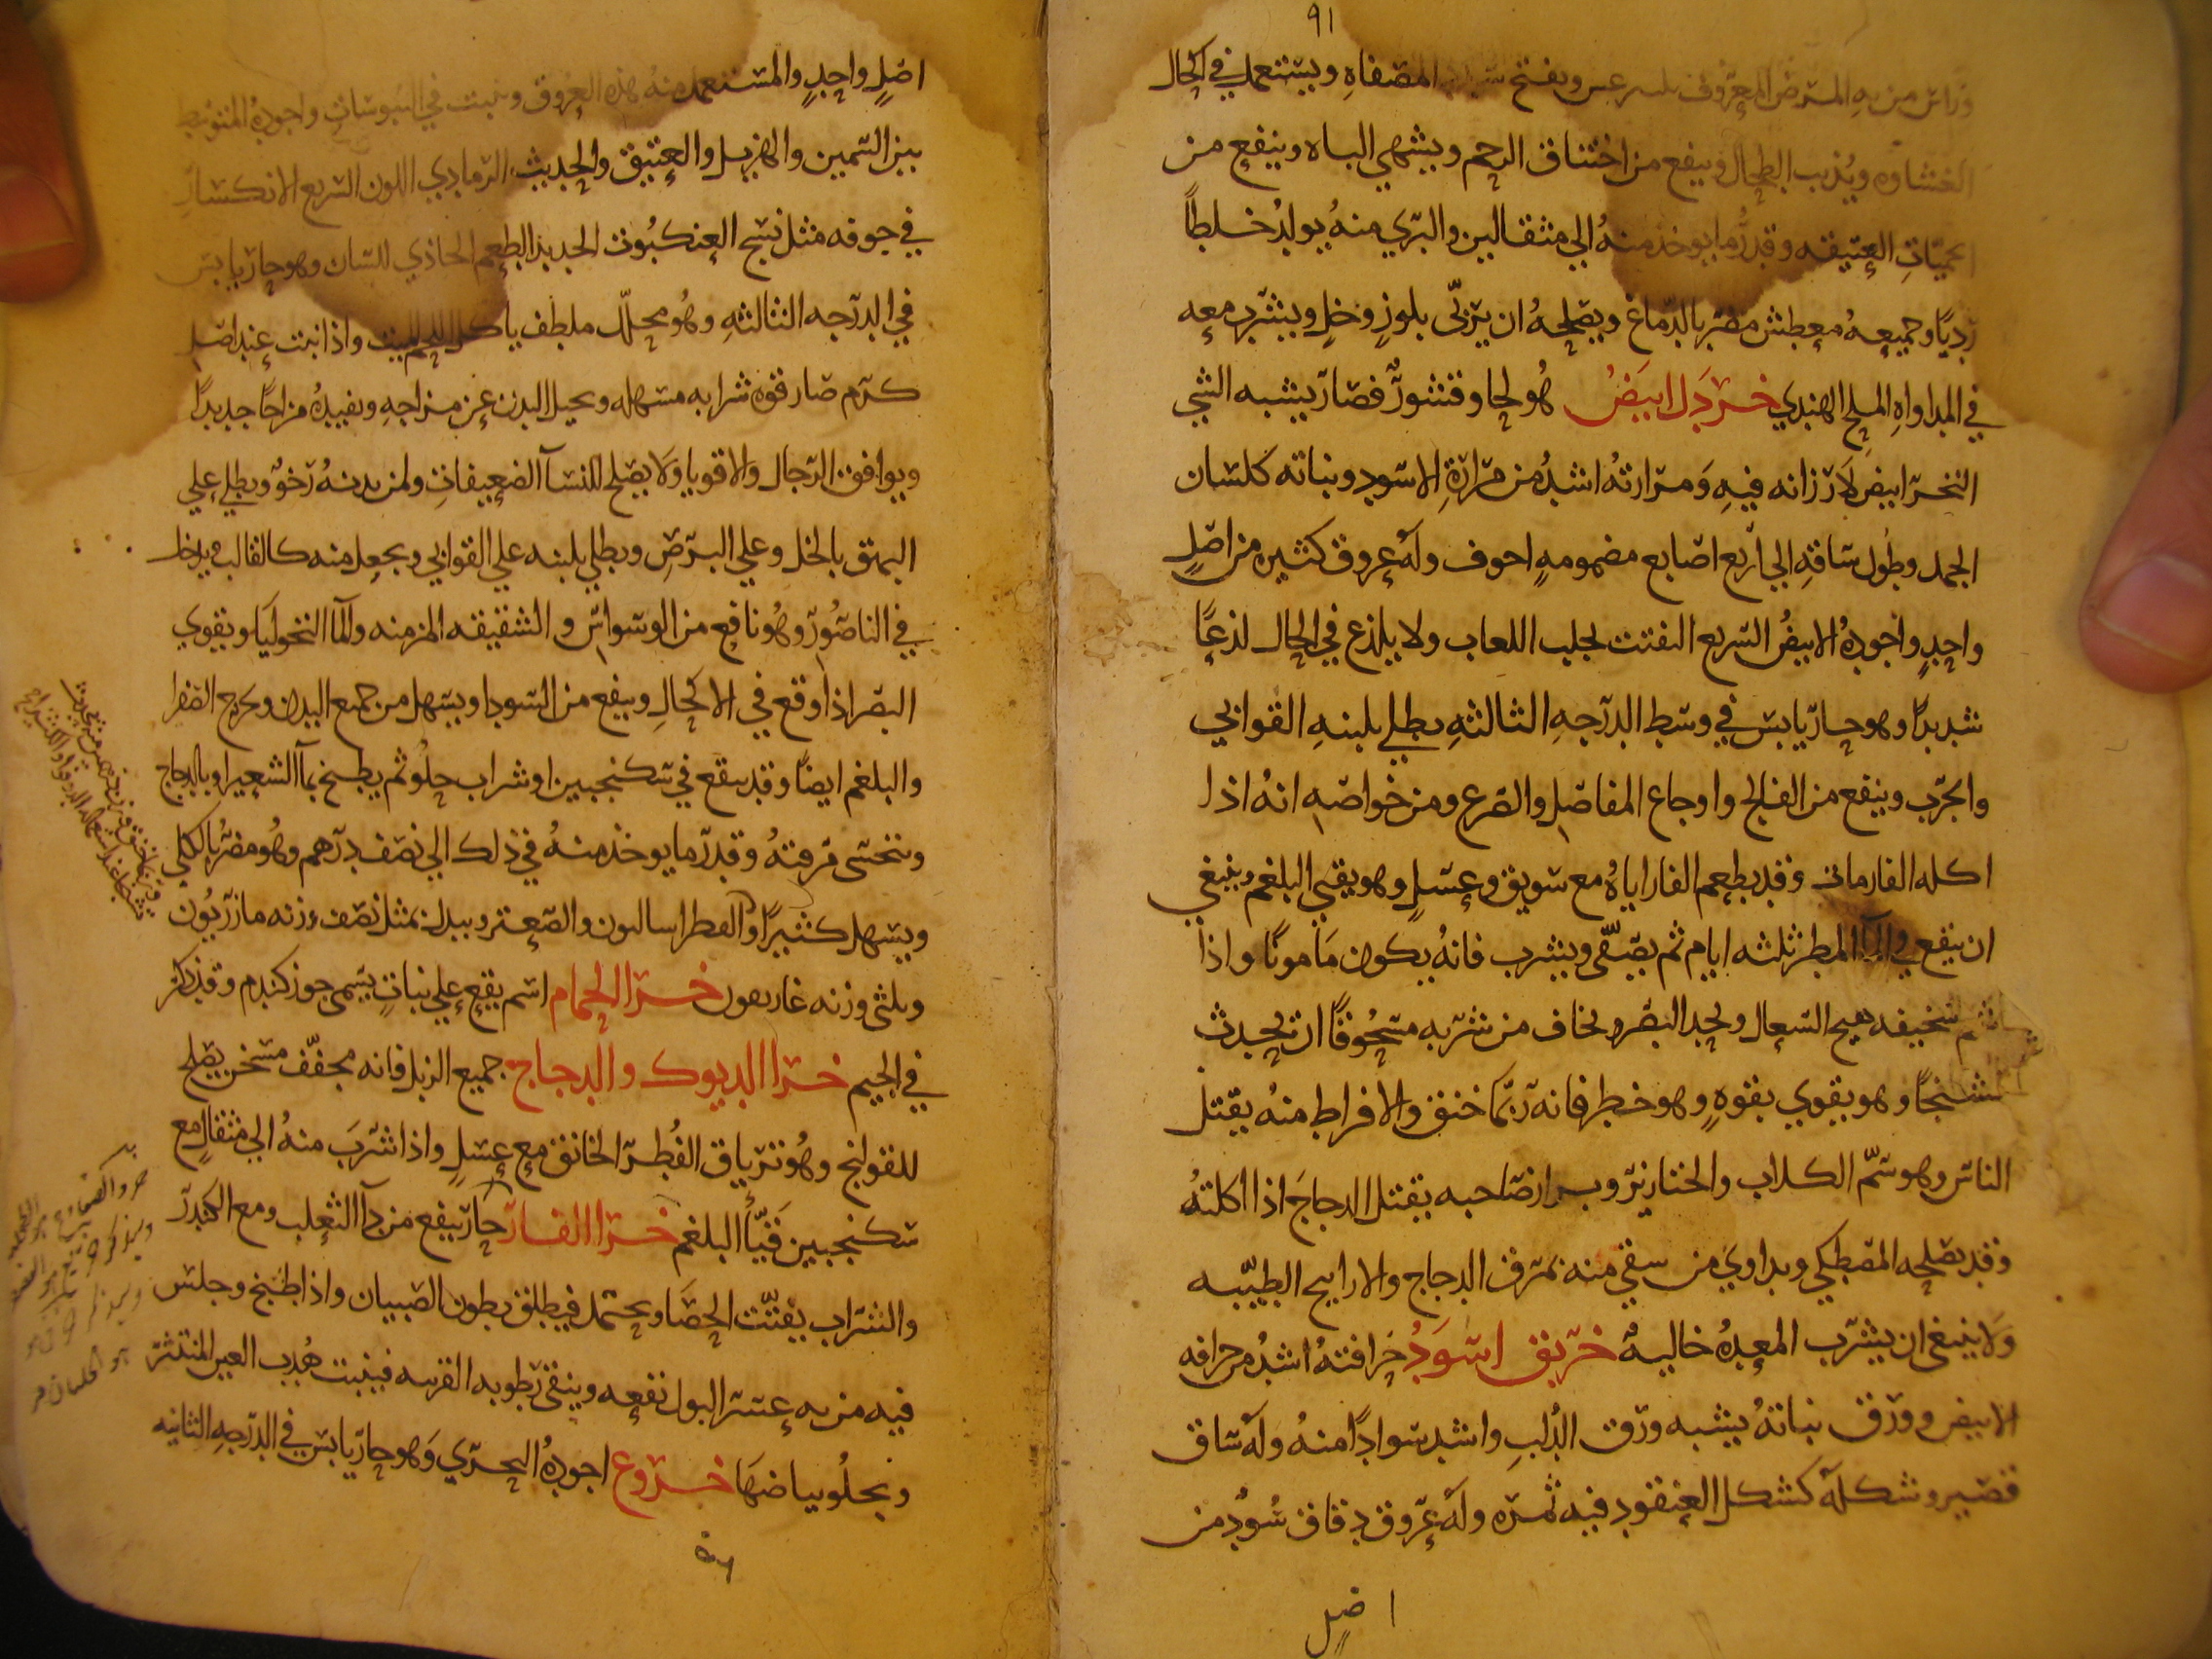 ٩١
وراس من به المرض المعروف ويفتح المصفاه ويستعمل في اكحال
الغشاوه ويذيب الطحال وينفع من اختناق الرحم ويشهي الباه وينفع من
الحميات العتيقه وقدر ما يوخذ منه الي مثقالين والبري منه يولد خلطاً
رديًا وجميعه معطش مضر بالدماغ ويصلحه ان يربى بلوز وخل ويشرب معه
في المداواه الملح الهندي خردل ابيض هو لحا وقشور فصار يشبه الشي
النخر ابيض لا رزانه فيه ومرارته اشد من مرارة الاسود ونباته كلسان
الجمل وطول ساقه الي اربع اصابع مضمومه اجوف وله عروق كثيره من اصل
واحد واجوده الابيض السريع التفتت لجلب اللعاب ولا يلذع في الحال لذعًا
شديدًا وهو حار يابس في وسط الدرجه الثالثه يطلي بلبنه القوابي
والجرب وينفع من الفالج واوجاع المفاصل والصرع ومن خواصه انه اذا
اكله الفار مات وقد يطعم الفار اياه مع سويق وعسل وهو يقي البلغم وينبغي
ان ينقع في الماء المطر ثلثه ايام ثم يصفى ويشرب فانه يكون مامونًا واذا
شم سخيفه هيج السعال ويحد البصر ويخاف من شربه مسحوقًا ان يحدث
تشنجًا وهو يقوي بقوه وهو خطر فانه ربما خنق والافراط منه يقتل
الناس وهو سم الكلاب والخنازير وبراز صاحبه يقتل الدجاج اذا اكلته
وقد يصلحه المصطكي ويداوي من سقي منه بمرق الدجاج والارايح الطيبه
ولا ينبغي ان يشرب المعده خاليه خربق اسود حرافته اشد من حرافه
الابيض وورق نباته يشبه ورق الدلب واشد سوادًا منه وله ساق
قصير وشكله كشكل العنقود فيه ثمره وله عروق دقاق سود من
اصل
اصل واحد والمستعمل منه هذه العروق وينبت في اليبوسات واجوده المتوسط
بين السمين والهزيل والعتيق والحديث الرمادي اللون السريع الانكسار
في جوفه مثل نسج العنكبوت الحديد الطعم الحاذي للسان وهو حار يابس
في الدرجه الثالثه وهو محلل ملطف ياكل اللحم الميت واذا نبت عند اصل
كرم صار قوه شرابه مسهله ويحيل البدن عن مزاجه ويفيده مزاجًا جديدًا
ويوافق الرجال والاقويا ولا يصلح للنسا الضعيفات ولمن بدنه رخو ويطلي علي
البهق بالخل وعلي البرص ويطلي بلبنه علي القوابي ويجعل منه كالقالب ويدخل
في الناصور وهو نافع من الوسواس والشقيقه المزمنه والماالنخوليا ويقوي
البصر اذا وقع في الاكحال وينفع من السودا ويسهل من جميع البدن ويخرج الصفرا
والبلغم ايضًا وقد ينقع في سكنجبين او شراب حلو ثم يطبخ بماء الشعير او بالدجاج
ويتحسى مرقته وقدر ما يوخذ منه في ذلك الي نصف درهم وهو مضر بالكلي
ويسهل كثيرًا والفطراساليون والصعتر وبدله بمثل نصف وزنه مازريون
وثلثي وزنه غاريقون خرا الحمام اسم يقع علي نبات يسمى جوز كندم وقد ذكر
في الجيم خرا الديوك والدجاج جميع الزبل فانه مجفف مسخن يصلح
للقولنج وهو ترياق الفطر الخانق مع عسل واذا شرب منه الي مثقال مع
سكنجبين قيأ البلغم خرا الفار حار ينفع من دآ الثعلب ومع الكندر
والشراب يفتت الحصا ويحتمل فيطلق بطون الصبيان واذا طبخ وجلس
فيه من به عسر البول نفعه وينقي رطوبه القرنيه فينبت هدب العين المنتثر
ويجلو بياضها خروع اجوده البحري وهو حار يابس في الدرجه الثانيه